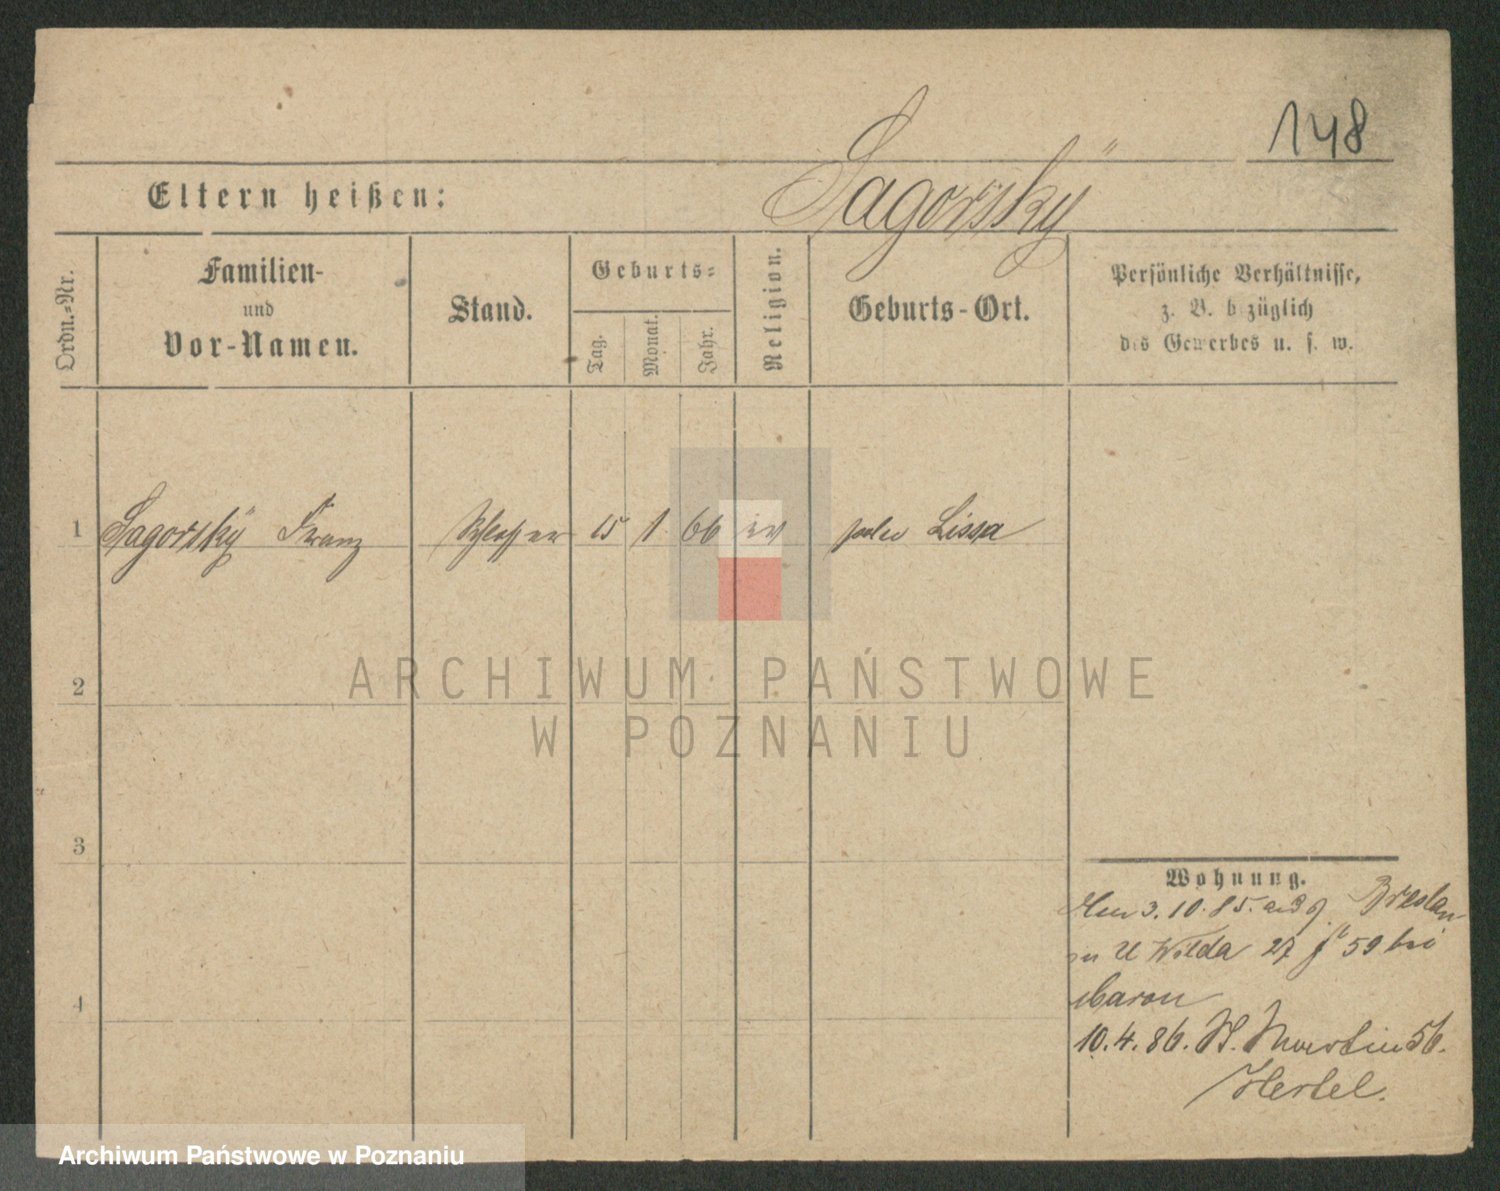 148
Eltern heißen:
Sagorsky
Ordn.-Nr.
Familien-
und
Vor-Namen.
Stand.
Geburts-
Tag.
Monat.
Jahr.
Religion.
Geburts-Ort.
Persönliche Verhältnisse,
z. B. bezüglich
des Gewerbes u. s. w.
1 Sagorsky Franz Schlosser 15 1 66 ev Lissa
ARCHIWUM PAŃSTWOWE
W POZNANIU
2
3
4
Wohnung.
3.10.85. Breslau
U Wilda 27 59 bei
Baron
10.4.86. St. Martin 56.
Hertel.
Archiwum Państwowe w Poznaniu